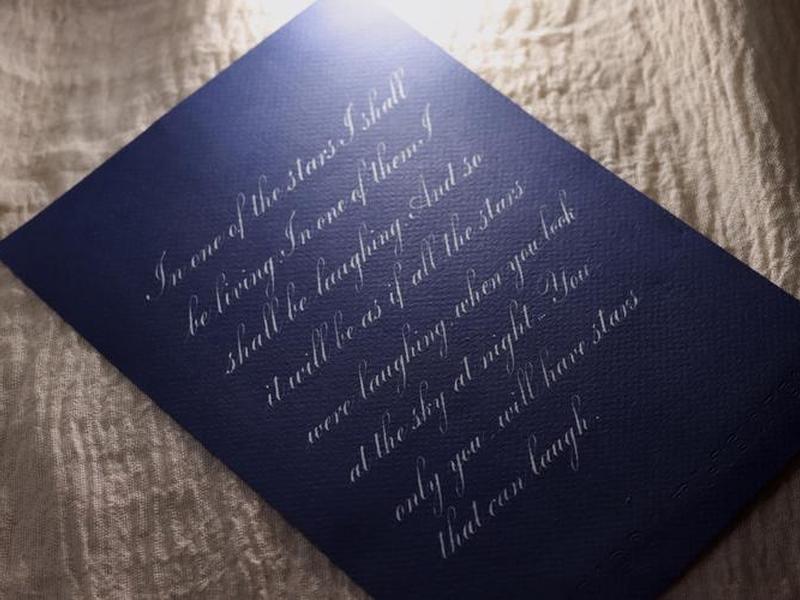 In one of the stars I shall
be living. In one of them I
shall be laughing. And so
it will be as if all the stars
were laughing, when you look
at the sky at night... You
only you will have stars
that can laugh.